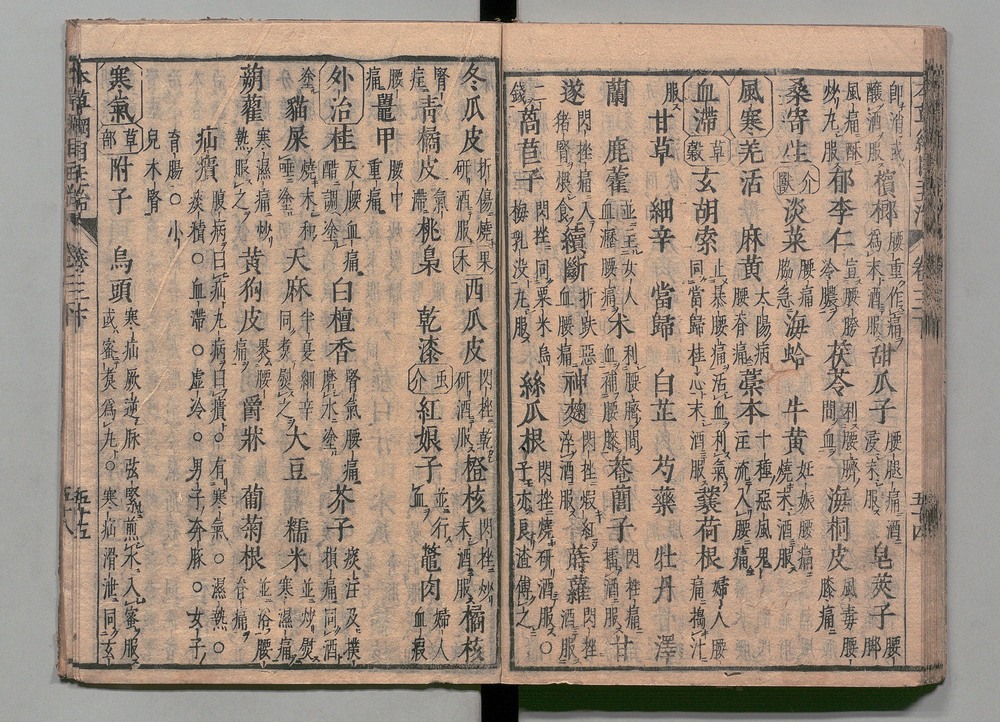 即消或檳榔腰重作痛甜瓜子腰腿痛酒皂莢子腰
釀酒服為末酒服浸末服脚
風痛酥郁李仁宣腰胯茯苓利腰臍海桐皮風毒腰
炒丸服冷膿間血膝痛
桑寄生介獸淡菜腰痛海蛤牛黃妊娠腰痛
脇急燒末酒服
風寒羌活麻黃太陽病藁本十種惡風鬼
腰脊痛注流入腰痛
血滯草穀玄胡索止暴腰痛活血利氣蘘荷根婦人腰
同當歸桂心末酒服痛搗汁
服甘草細辛當歸白芷芍藥牡丹澤
蘭鹿藿並主女人朮利腰臍間菴䕡子閃挫痛甘
血瀝腰痛血補腰膝擂酒服
遂閃挫痛入續斷折跌惡神麴閃挫煅紅蒔蘿閃挫
猪腎煨食血腰痛淬酒服酒服
二錢萵苣子閃挫同粟米烏絲瓜根閃挫燒研酒服
梅乳没丸服子亦良渣傅之
冬瓜皮折傷燒果木西瓜皮閃挫乾橙核閃挫炒橘核
研酒服研酒服末酒服
腎疰青橘皮氣滯桃梟乾漆虫介紅娘子並行血鼈肉婦人血瘕
腰痛鼉甲腰中重痛
外治桂反腰血痛白檀香腎氣腰痛芥子痰注及撲
醋調塗磨水塗損痛同酒
塗貓屎燒末和天麻半夏細辛大豆糯米並炒熨
唾塗同煮熨之寒濕痛
蒴藋寒濕痛炒黃狗皮裹腰痛爵牀葡萄根並浴腰
熱服之脊痛
疝㿉腹病曰疝丸病曰㿉○有寒氣○濕熱○
痰積○血滯○虛冷○男子奔豚○女子
育腸○小兒木腎
寒氣草部附子烏頭寒疝厥逆脉弦煎水入蜜服
或蜜煮為丸○寒疝滑泄同玄